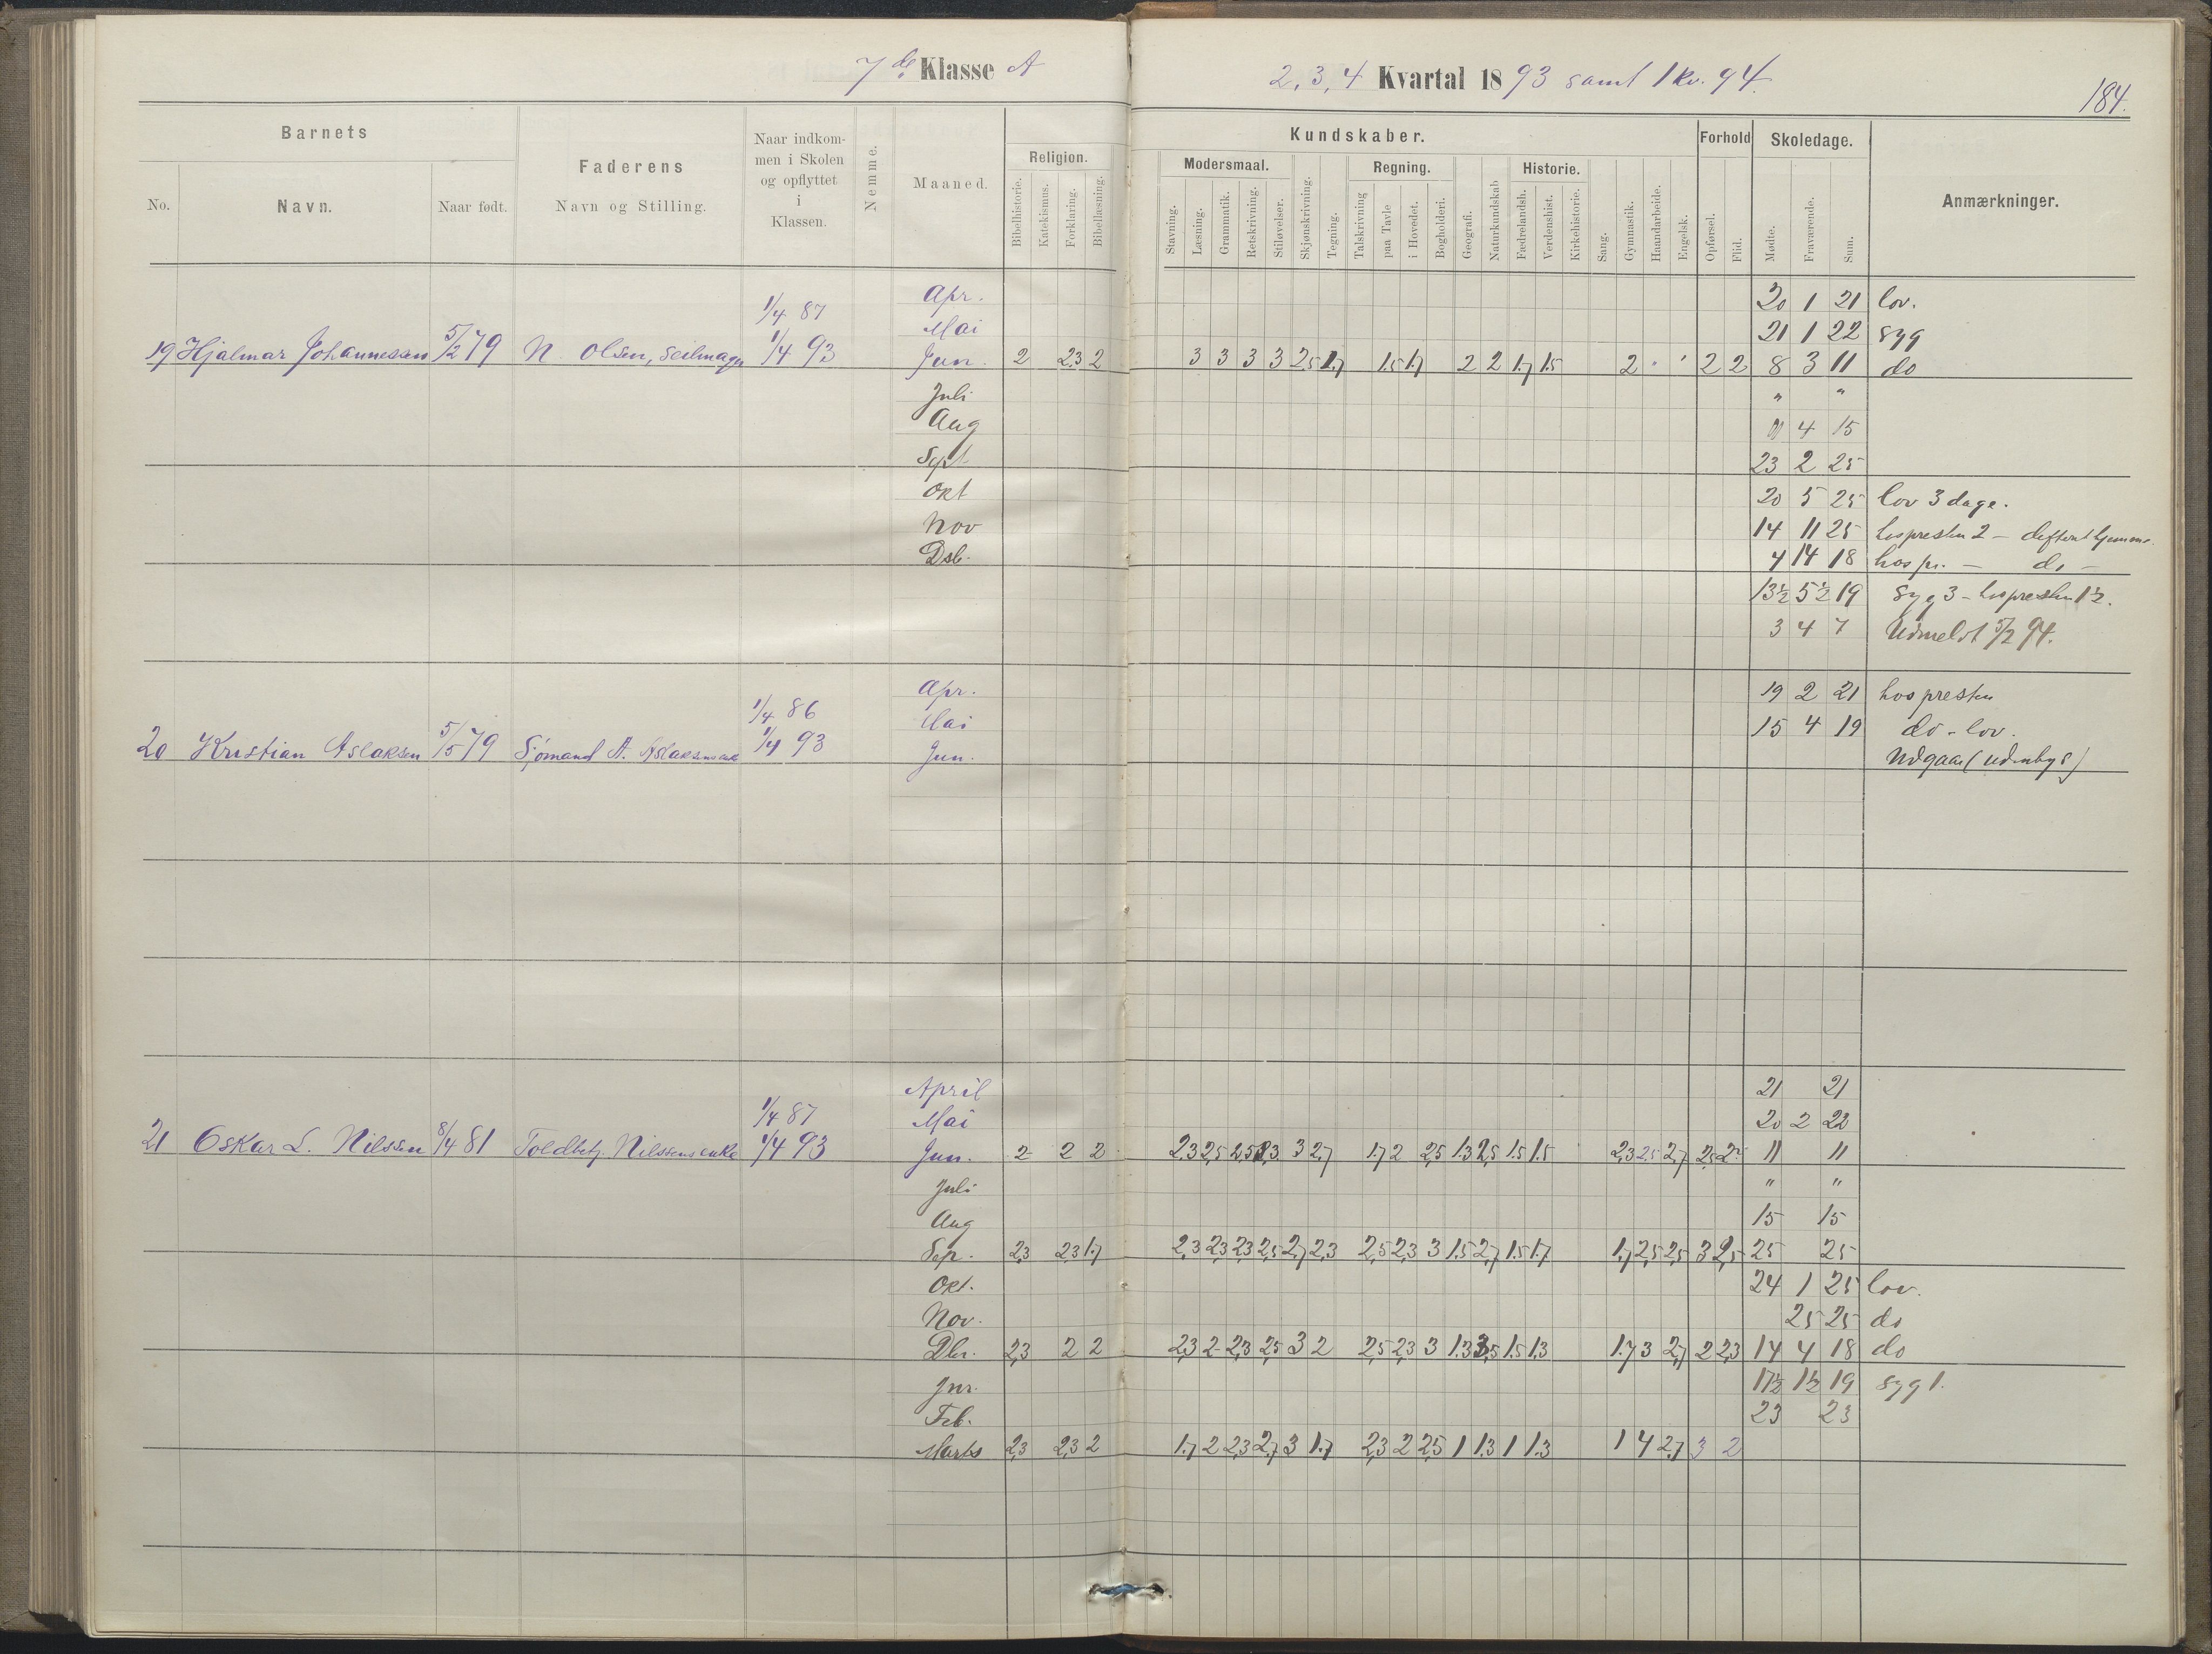 7de Klasse A
2, 3, 4 Kvartal 1893 samt 1 kv. 94.
184.
Barnets
No.
Navn.
Naar født.
Faderens
Navn og Stilling.
Naar indkom-
men i Skolen
og opflyttet
i
Klassen.
Nemme.
Maaned.
Religion.
Bibelhistorie.
Katekismus.
Forklaring.
Bibellæsning.
Kundskaber.
Modersmaal.
Stavning.
Læsning.
Grammatik.
Retskrivning.
Stiløvelser.
Skjønskrivning.
Tegning.
Regning.
Talskrivning
paa Tavle
i Hovedet.
Bogholderi.
Geografi.
Naturkundskab
Historie.
Fædrelandsh.
Verdenshist.
Kirkehistorie.
Sang.
Gymnastik.
Haandarbeide.
Engelsk.
Forhold
Opførsel.
Flid.
Skoledage.
Mødte.
Fraværende.
Sum.
Anmærkninger.
1/4 87 Apr. 20 1 21 lov.
Mai 21 1 22 syg
19 Hjalmar Johannessen 5/2 79 N. Olsen, Seilmager 1/4 93 Jun. 2 2,3 2 3 3 3 3 2,5 1,7 1.5 1.7 2 2 1.7 1.5 2 " ' 2 2 8 3 11 do
Juli " "
Aug 4 15
Sept 23 2 25
Okt 20 5 25 lov 3 dage.
Nov 14 11 25 hos presten 2 -
Dsb. 4 14 18 hos pr. - do -
13½ 5½ 19 syg 3 - hos presten 1½.
3 4 7 Udmeldt 5/2 94.
Apr. 19 2 21 hos presten
1/4 86 Mai 15 4 19 do - lov.
20 Kristian Aslaksen 5/5 79 Sjømand A. Aslaksens enke 1/4 93 Jun. Udgaar (udenbys)
April 21 21
1/4 87 Mai 20 2 22
21 Oskar L. Nilssen 8/4 81 Toldbetj. Nilssens enke 1/4 93 Jun. 2 2 2 2.3 2,5 2.5 2.3 3 2,7 1.7 2 2,5 1.3 2,5 1.5 1.5 2,3 2.5 2,7 2,5 2 11 11
Juli " "
Aug 15 15
Sep. 2,3 2.3 1.7 2,3 2,3 2,3 2,5 2,7 2,3 2,5 2,3 3 1.5 2,7 1.5 1.7 1,7 2,5 2,5 3 2,5 25 25
Okt. 24 1 25 lov.
Nov. 25 25 do
Dbr. 2,3 2 2 2,3 2 2,3 2,5 3 2 2,5 2,3 3 1.3 3,5 1.5 1.3 1.7 3 2,7 2 2,3 14 4 18 do
Jnr. 17½ 1½ 19 syg 1.
Feb. 23 23
Marts 2,3 2,3 2 1.7 2 2,3 2,7 3 1.7 2,3 2 2,5 1 1.3 1 1.3 1 4 2,7 3 2